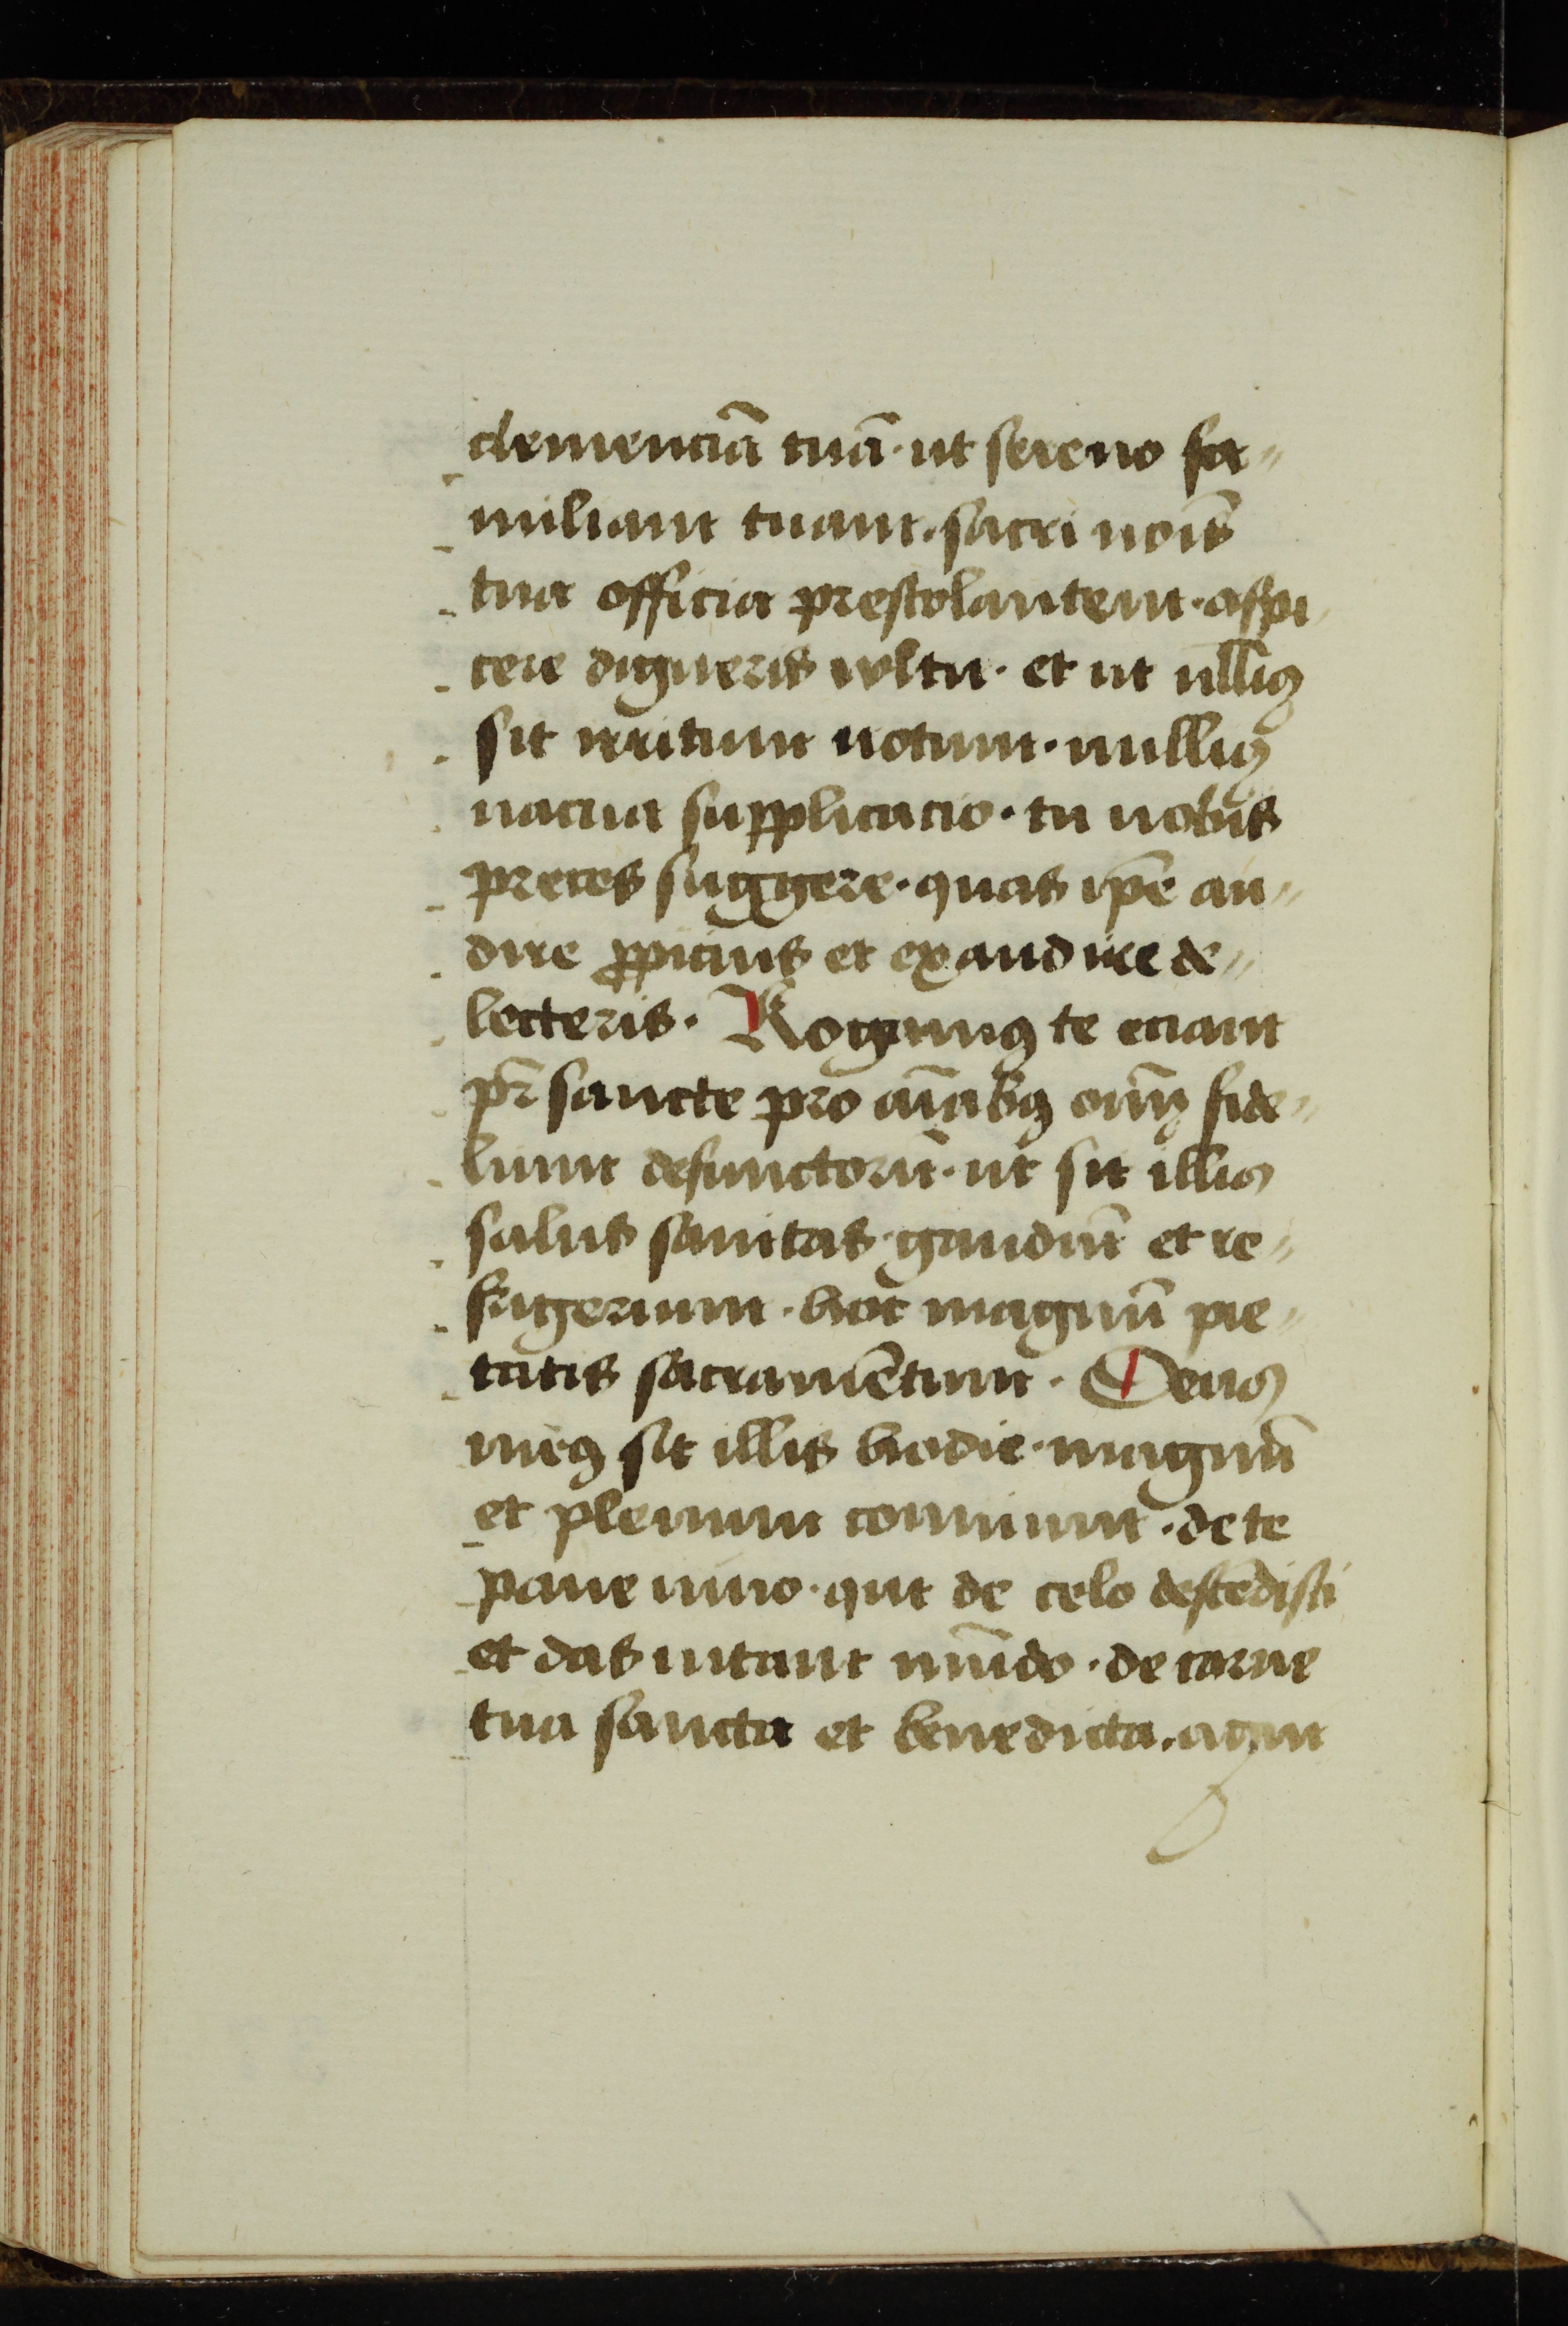 clemenciā tuā · ut sereno fa„
miliam tuam · sacri nōis
tua officia prestolantem · aspi
cere digneris vultu · et ut nulliꝰ
sit irritum uotum · nulliꝰ
uacua supplicacio · tu nobis
preces suggere · quas ip̄e au„
dire ꝓpicius et exaudire de„
lecteris · Rogamꝰ te eciam
pr̄ sancte pro aīabꝰ om̄ fide„
lium defunctorū · ut sit illis
salus sanitas · gaudiū et re„
frigerium · hoc magnū pie„
tatis sacramētum · Deus
meꝰ sit illis hodie · magnū
et plenum conuiuium · de te
pane uiuo · qui de celo descēdisti
et das uitam mūdo · de carne
tua sancta et benedicta · agni